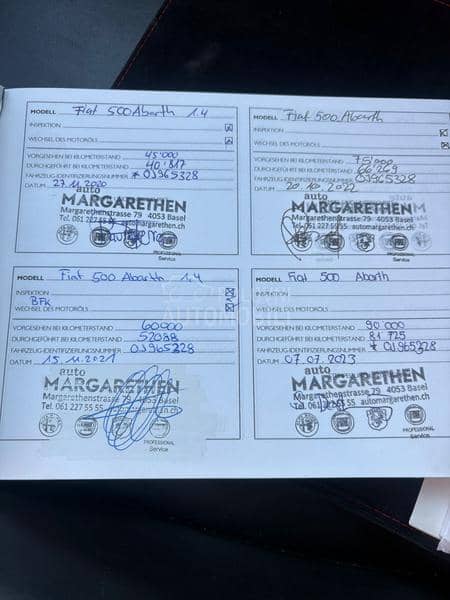 MODELL Fiat 500 Abarth 1.4
INSPEKTION
WECHSEL DES MOTORÖLS
VORGESEHEN BEI KILOMETERSTAND 45'000
DURCHGEFÜHRT BEI KILOMETERSTAND 40'817
FAHRZEUG-IDENTIFIZIERUNGSNUMMER * 01965328
DATUM 27.11.2020
auto
MARGARETHEN
Margarethenstrasse 79 4053 Basel
Tel. 061 227 55 55 automargarethen.ch
PROFESSIONAL
Service
MODELL Fiat 500 Abarth
INSPEKTION
WECHSEL DES MOTORÖLS
VORGESEHEN BEI KILOMETERSTAND 75'000
DURCHGEFÜHRT BEI KILOMETERSTAND 66'269
FAHRZEUG-IDENTIFIZIERUNGSNUMMER 01965328
DATUM 20.10.2022
auto
MARGARETHEN
Margarethenstrasse 79 4053 Basel
Tel. 061 227 55 55 automargarethen.ch
PROFESSIONAL
Service
MODELL Fiat 500 Abarth 1.4
INSPEKTION
BFK
WECHSEL DES MOTORÖLS
VORGESEHEN BEI KILOMETERSTAND 60000
DURCHGEFÜHRT BEI KILOMETERSTAND 52088
FAHRZEUG-IDENTIFIZIERUNGSNUMMER 01965328
DATUM 15.11.2021
auto
MARGARETHEN
Margarethenstrasse 79 4053 Basel
Tel. 061 227 55 55 automargarethen.ch
PROFESSIONAL
Service
MODELL Fiat 500 Abarth
INSPEKTION
WECHSEL DES MOTORÖLS
VORGESEHEN BEI KILOMETERSTAND 90'000
DURCHGEFÜHRT BEI KILOMETERSTAND 81'725
FAHRZEUG-IDENTIFIZIERUNGSNUMMER * 01965328
DATUM 07.07.2023
auto
MARGARETHEN
Margarethenstrasse 79 4053 Basel
Tel. 061 227 55 55 automargarethen.ch
PROFESSIONAL
Service